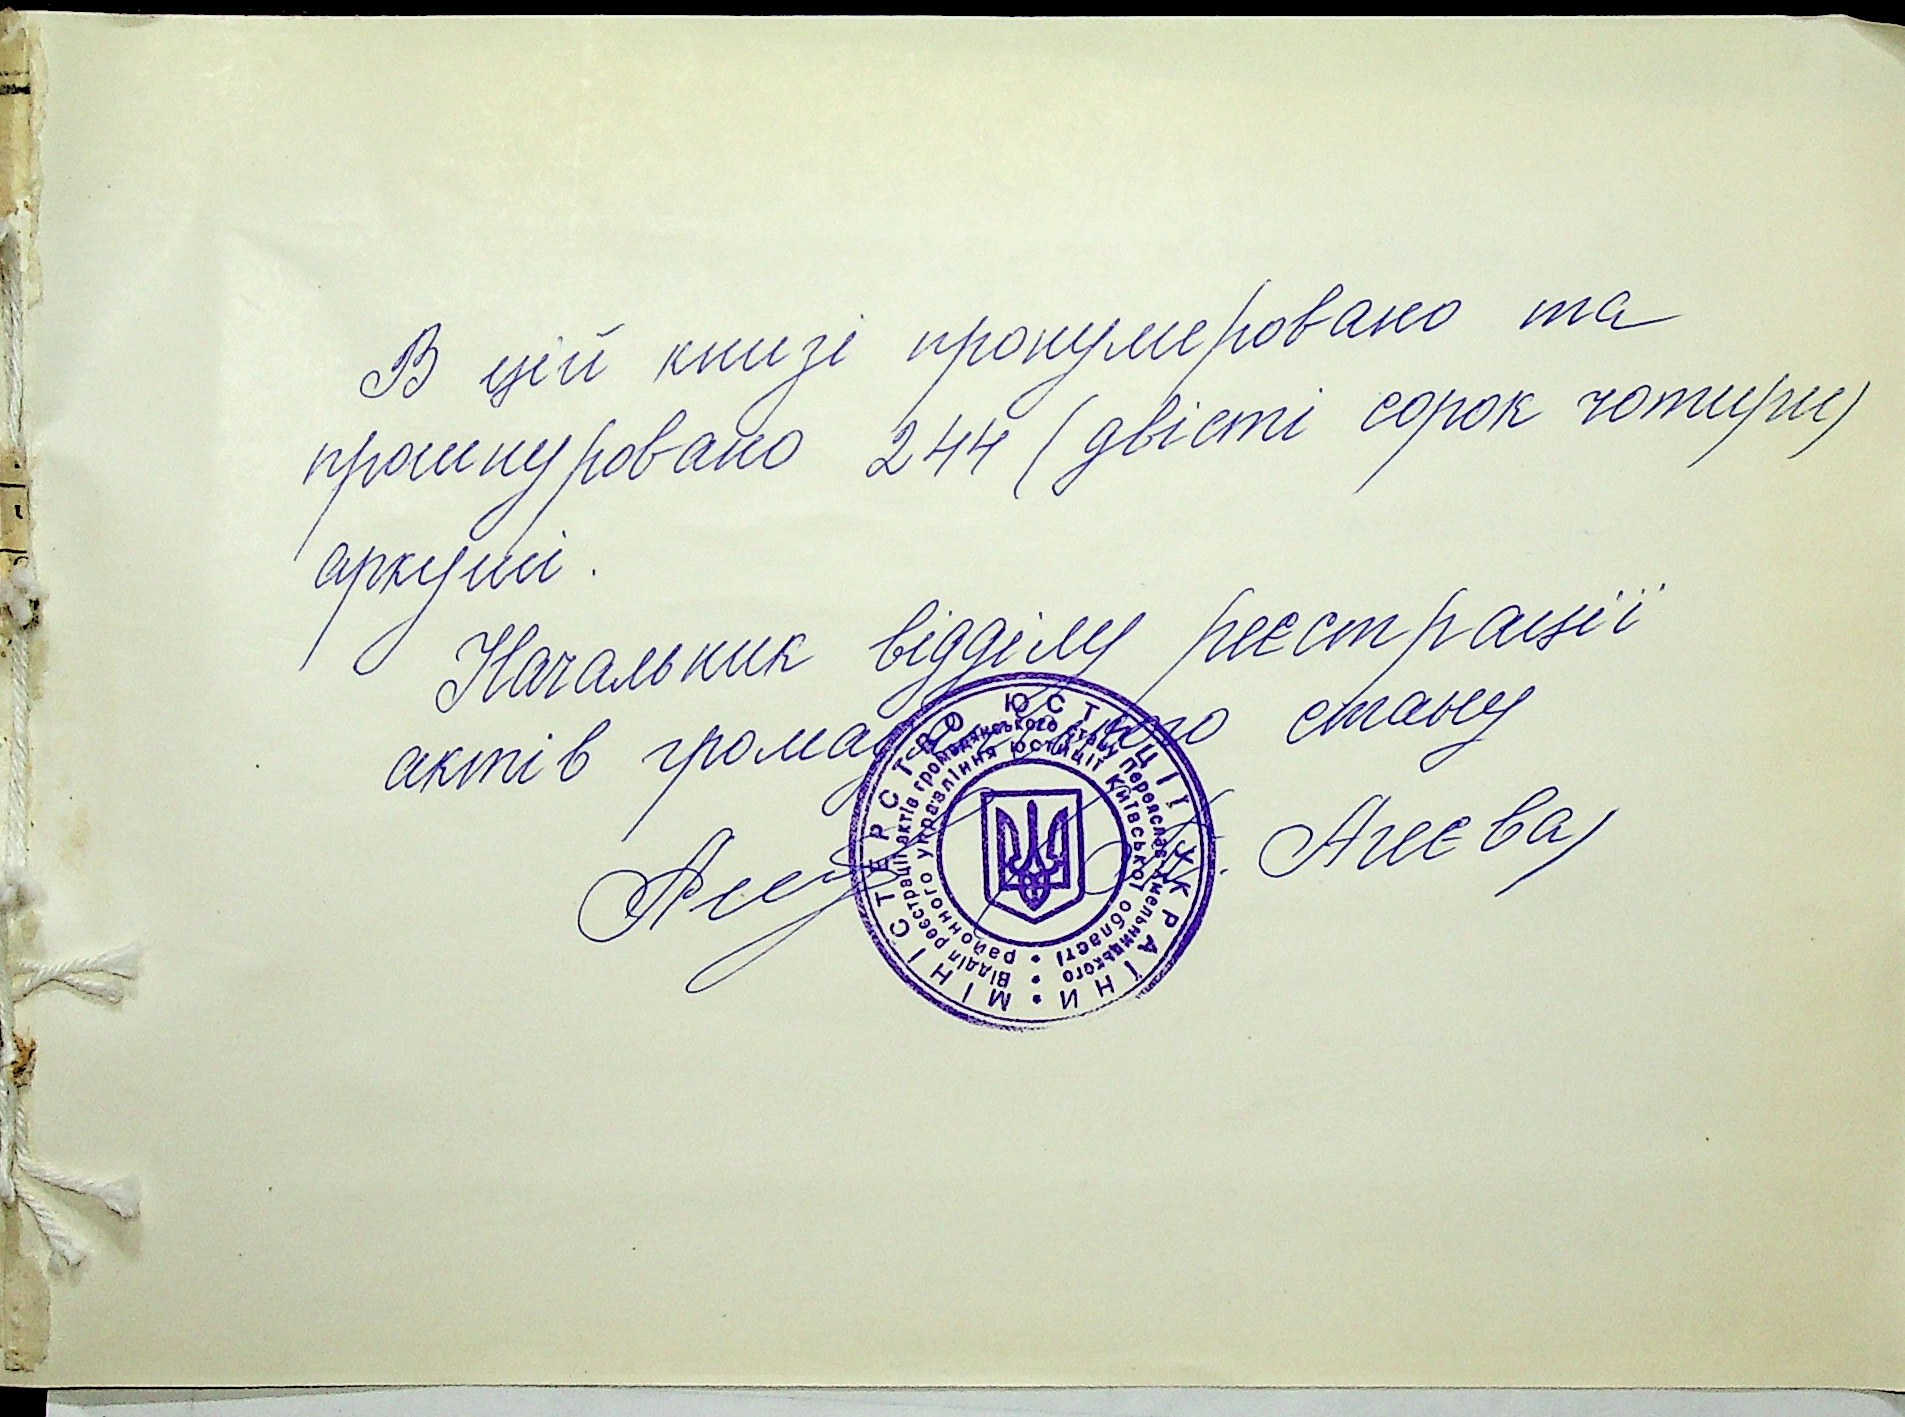 В цій книзі пронумеровано та
прошнуровано 244 (двісті сорок чотири)
аркуші.
Начальник відділу реєстрації
актів громадянського стану
Агеєва
МІНІСТЕРСТВО ЮСТИЦІЇ УКРАЇНИ
Відділ реєстрації актів громадянського стану Переяслав-Хмельницького
районного управління юстиції Київської області